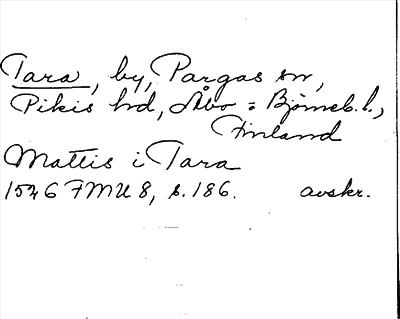 Tara, by, Pargas sn,
Pikis hd, Åbo = Björneb. l.,
Finland
Mattis i Tara
1546 FMU 8, s. 186. avskr.